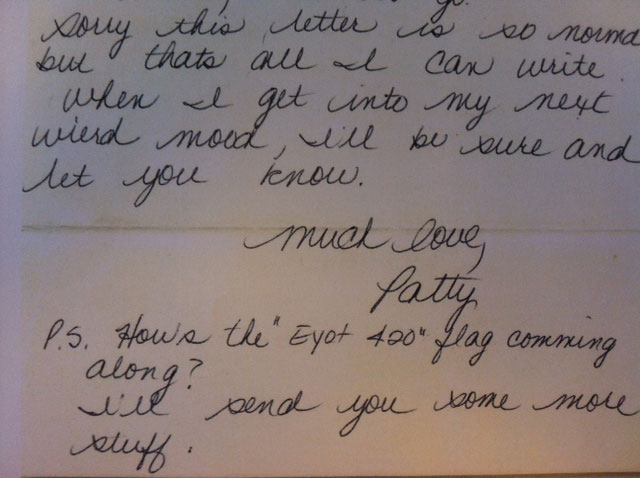 go.
sorry this letter is so norma
but thats all I can write.
When I get into my next
wierd mood, I'll be sure and
let you know.
Much love,
Patty
P.S. How's the "Eyot 420" flag comming
along?
I'll send you some more
stuff.